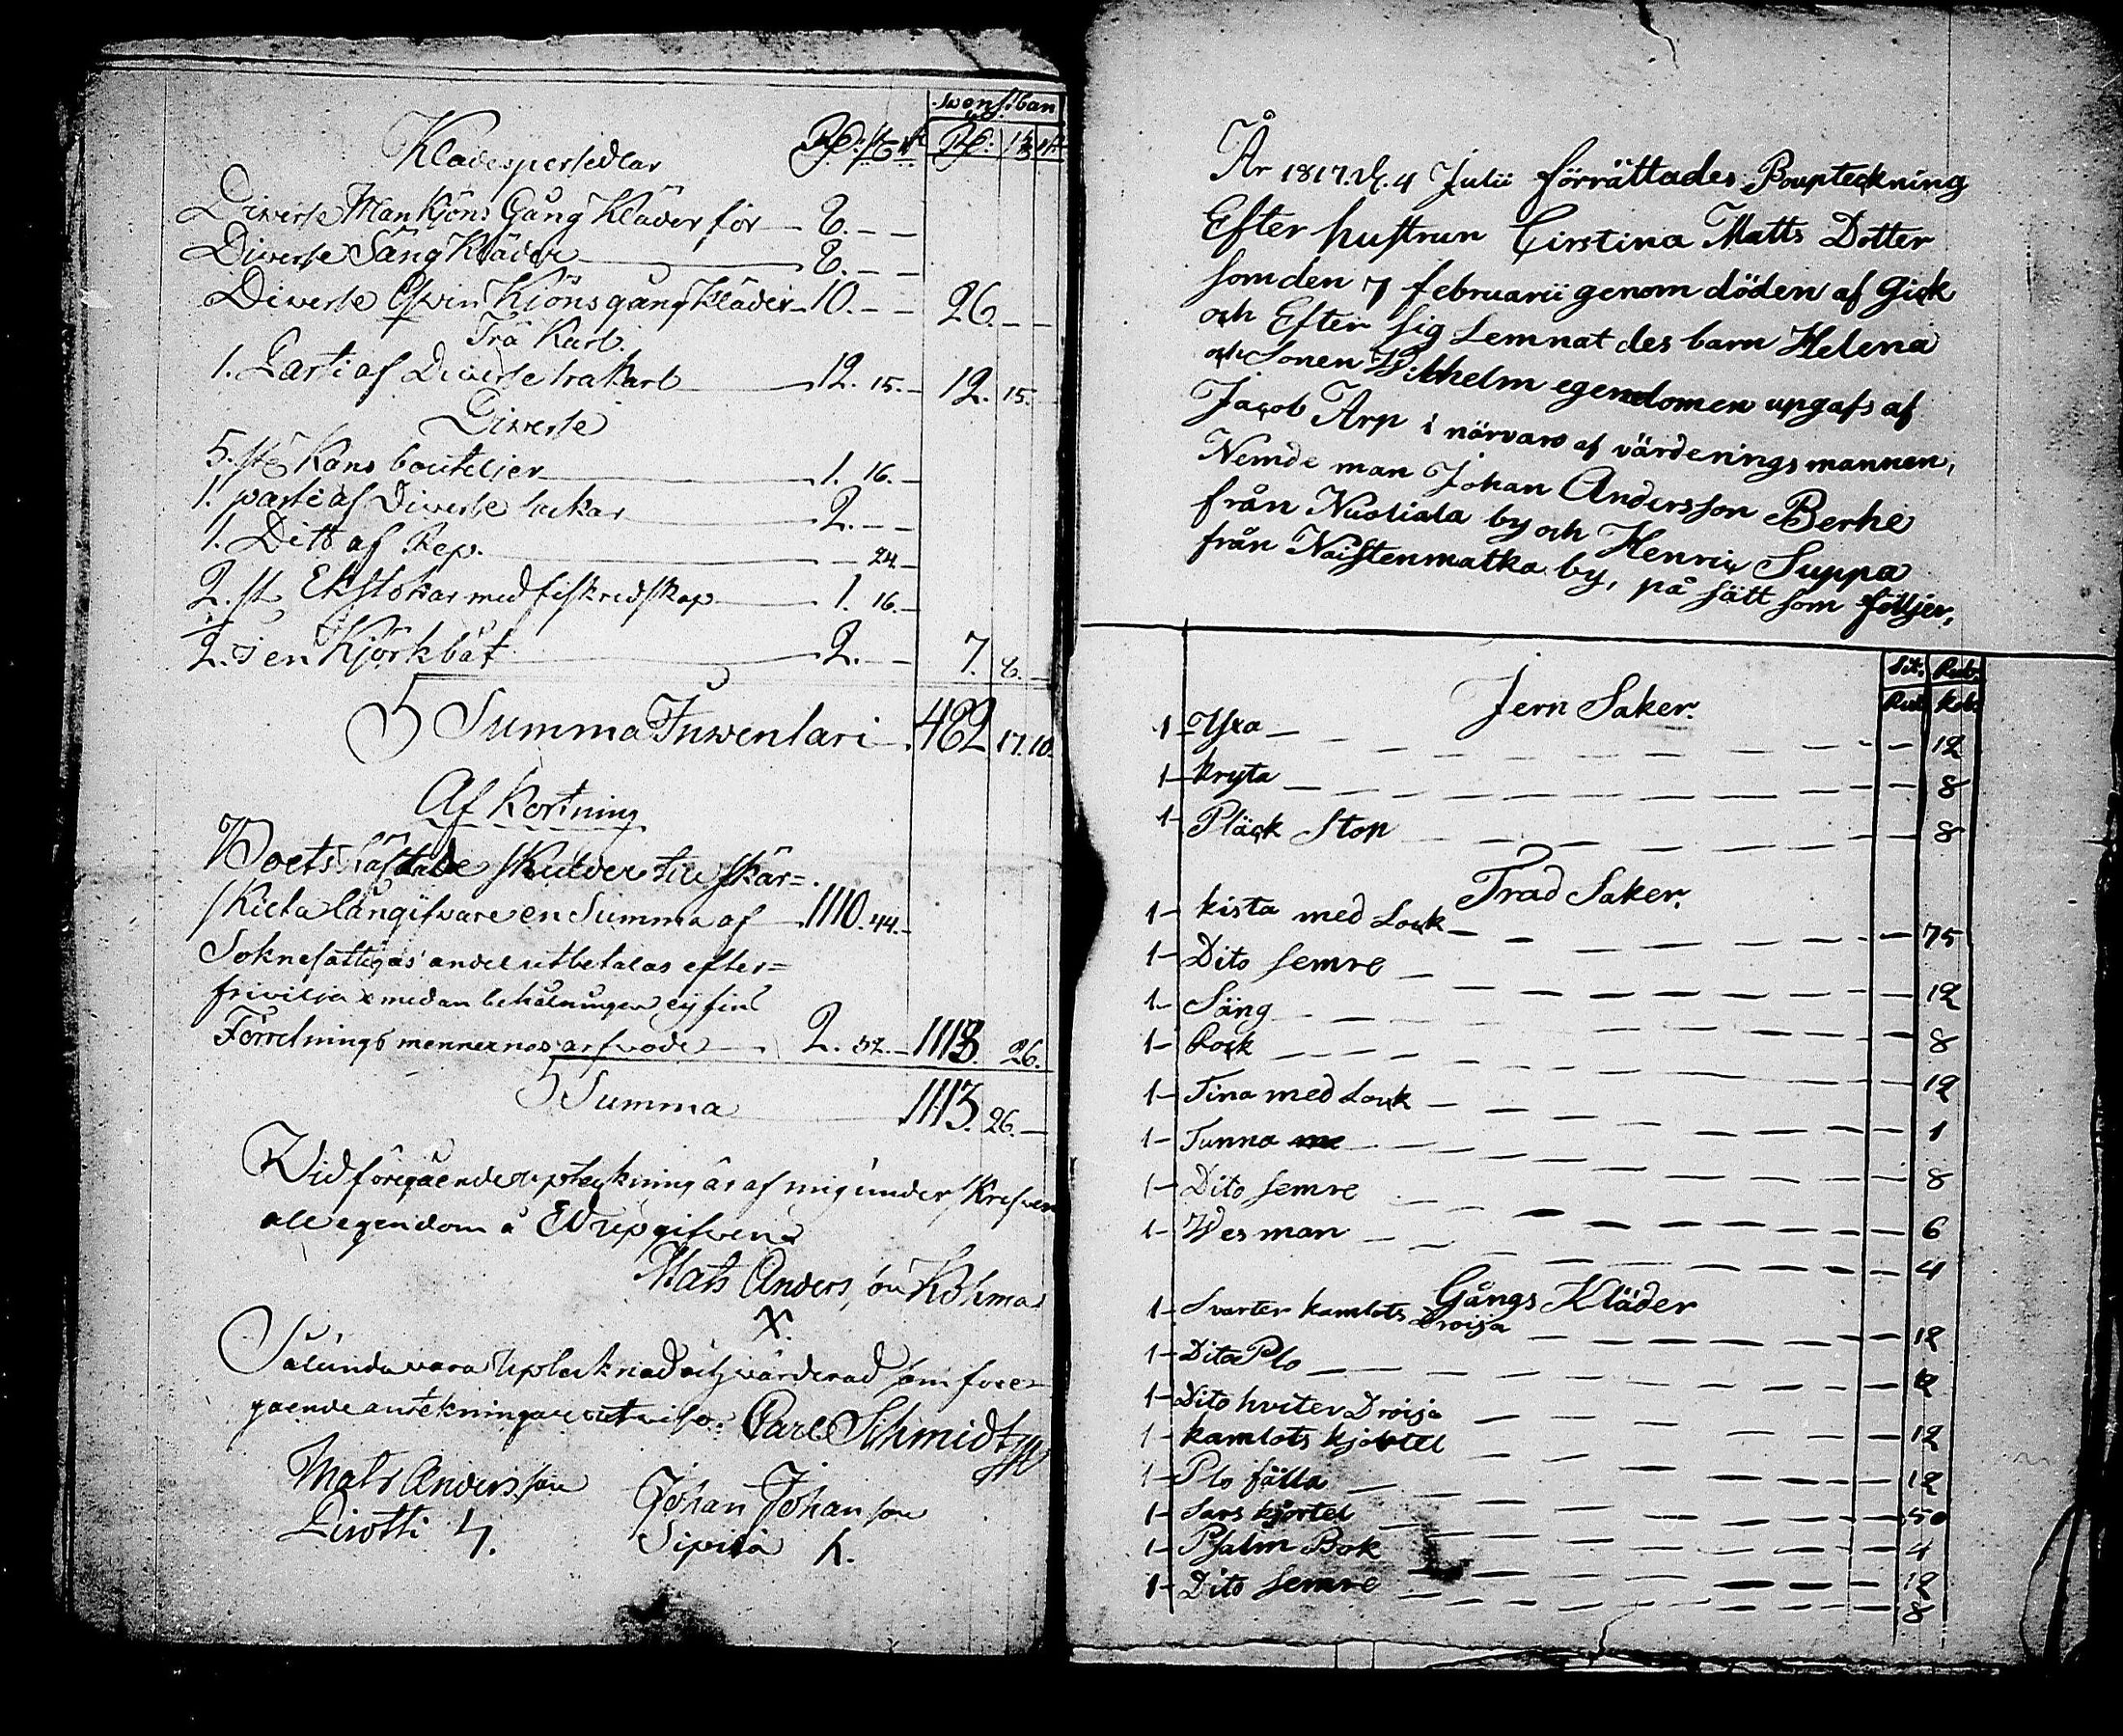 Swensk banco
Klädespersedlar Rd: sk r Rd: sk r
Diverse Mankjöns Gång Kläder för 8. — —
Diverse Säng Kläder 8. — —
Diverse Qvin Kjöns gång kläder 10. — — 26. — —
Trä Karl.
1. Parti af Diverse trä karl 12. 15. — 12. 15. —
Diverse
5. st Kans bouteljer 1. 16. —
1. parti af Diverse 2. — —
1. Dito af Rep. — 24 —
2. st Ekstokar med fiskredskap 1. 16. —
2. i en Kjörkbåt 2. — — 7. 8. —
Summa Inwentari 482 17. 10.
Af Kortning
Boets häftade skulder till skär=
skilta långifvare en Summa af 1110. 44. —
Soknefattigas andel utbetalas efter=
frivilja medan behålningen ej fins
Förretnings mennernas arfvode 2. 32. — 1113. 26.
Summa 1113. 26. —
Wid föregående upteckning är af mig under skrefven
all egendom å Ed upgifven
Mats Anders son Kohma
X.
Sålunda vara Upteknad och värderad som före
gående antekningar utvisa: Carl Schmidt
Mats Andersson Johan Johan son
Sipilä
År 1817. d. 4 Julii förrättades Boupteckning
Efter hustrun Cirstina Matts Dotter
som den 7 februarii genom döden af Gick
och Efter sig Lemnat des barn Helena
och Sonen Wilhelm egendomen upgafs af
Jacob Arp i närvaro af värderingsmannen,
Nemde man Johan Andersson Berhe
från Nuoliala by och Henric Suppa
från Naistenmatka by, på sätt som följer,
Sil. Rub.
Rub. Kob.
Jern Saker.
1 — Yxa — 12
1 — kryta — 8
1 — Pläck Stop — 8
Träd Saker.
1 — kista med Lock — 75
1 — Dito semre — 12
1 — Säng — 8
1 — Rock — 12
1 — Tina med Lock — 1
1 — Tunna — 8
1 — Dito semre — 6
1 — Wesman — 4
Gångs Kläder
1 — Svarter kamlots Droija — 12
1 — Dito Plo — 12
1 — Dito hviter Droija — 12
1 — kamlots kjortel — 12
1 — Plo fälla — 50
1 — Sars kjortel — 4
1 — Psalm Bok — 12
1 — Dito semre — 8